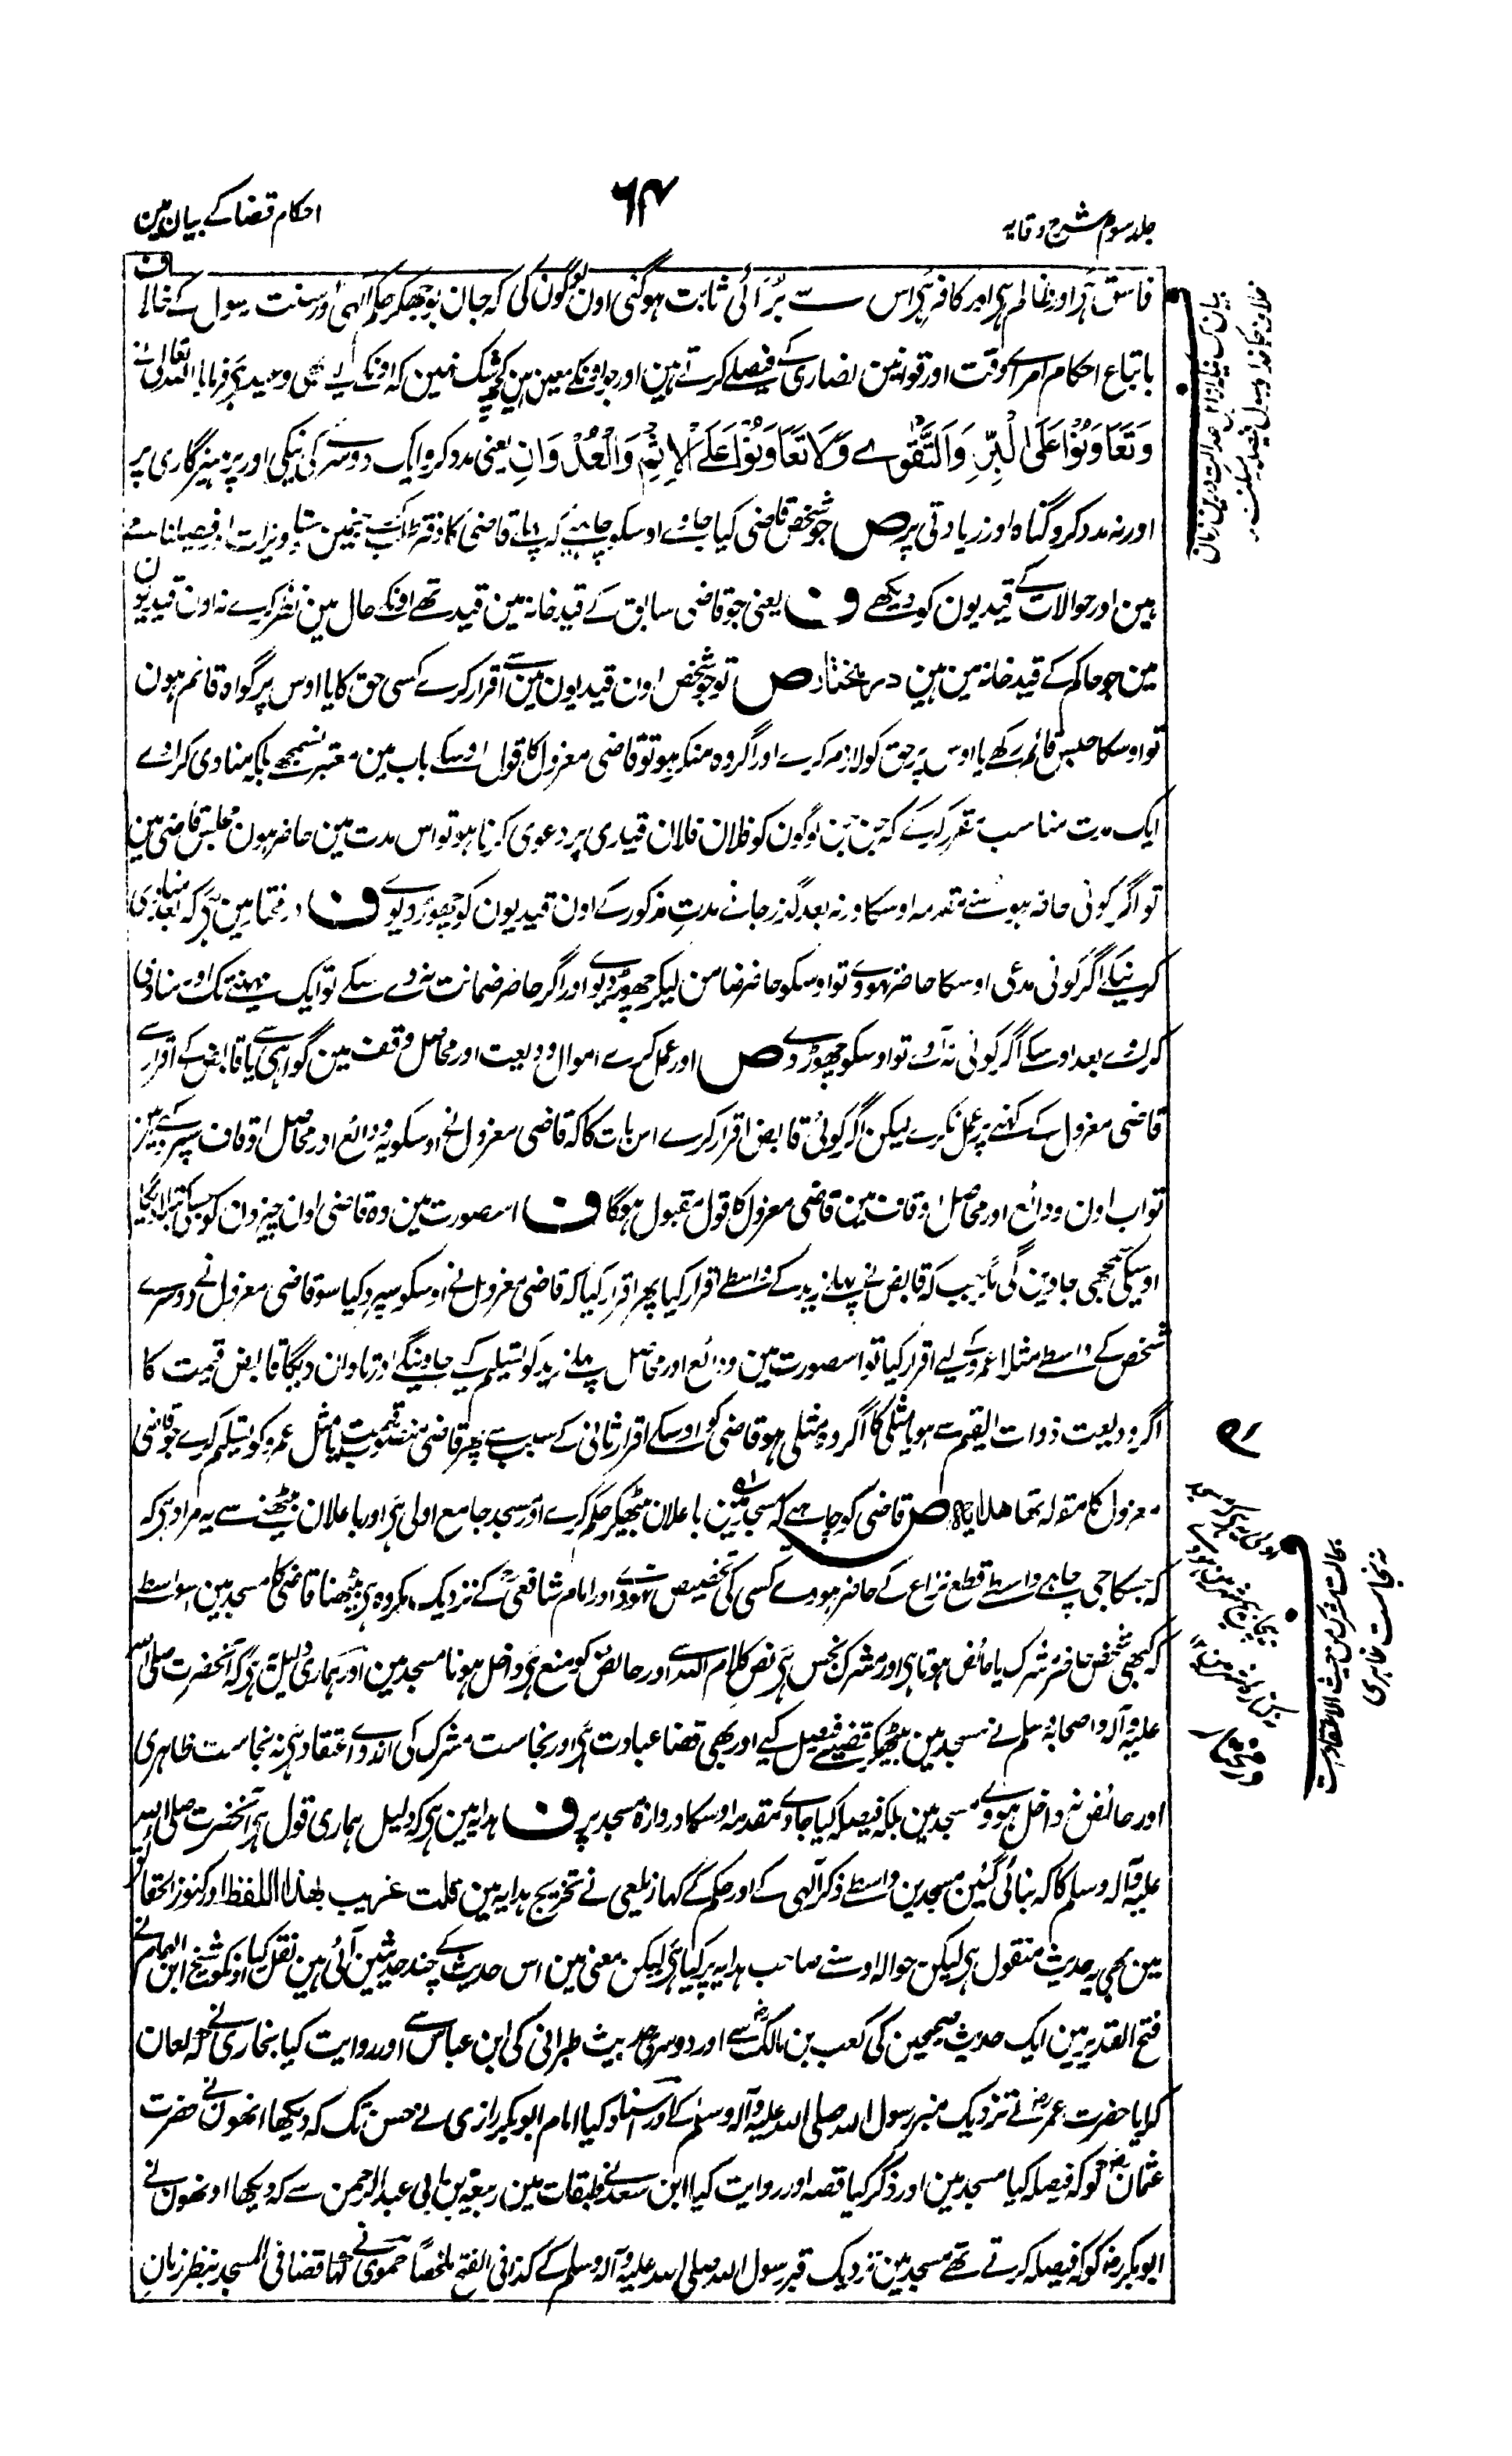 جلد سوم شرح وقایہ
۶۴
احکام قضا کے بیان مین
فاسق ہی اور ظالم ہی اور کافر ہی اس سے برائی ثابت ہوگئی اون لوگون کی کہ جان بوجھکر حکم الہی اور سنت رسول کے خلاف
باتباع احکام امراے وقت اور قوانین نصاری کے فیصلے کرتے ہین اور جو اونکے معین ہین کچھ شک نہین کہ اونکے لیے بھی وعید ہی فرمایا اللہ تعالیٰ نے
وَتَعَاوَنُوْا عَلَى الْبِرِّ وَالتَّقْوٰے وَلَا تَعَاوَنُوْا عَلَے الْاِثْمِ وَالْعُدْوَانِ یعنی مدد کرو ایک دوسرے کی نیکی اور پرہیزگاری پر
اور نہ مدد کرو گناہ اور زیادتی پر ص جو شخص قاضی کیا جاوے اوسکو چاہیے کہ پہلے قاضی کا دفتر طلب کرے جسمین دستاویزات اور فیصلنامے
ہین اور حوالات کے قیدیون کو دیکھے ف یعنی جو قاضی سابق کے قید خانہ مین قید تھے اونکے حال مین نظر کرے نہ اون قیدیون
مین جو حاکم کے قید خانہ مین ہین درمختار ص تو جو شخص اون قیدیون مین سے اقرار کرے کسی حق کا یا اوس پر گواہ قائم ہون
تو اوسکا حبس قائم رکھے یا اوس پر حق کو لازم کرے اور اگر وہ منکر ہو تو قاضی معزول کا قول اوسکے باب مین معتبر نسمجھے بلکہ منادی کراوے
ایک مدت مناسب مقرر کرکے کہ جن جن لوگون کو فلان فلان قیدی پر دعوی کرنا ہو تو اس مدت مین حاضر ہون مجلس قاضی مین
تو اگر کوئی حاضر ہو سنے مقدمہ اوسکا ورنہ بعد گذر جانے مدت مذکور کے اون قیدیون کو چھوڑ دیوے ف درمختار مین ہی کہ بعد منادی
کرنیکے اگر کوئی مدعی اوسکا حاضر نہووے تو اوسکو حاضر ضامن لیکر چھوڑ دیوے اور اگر حاضر ضمانت نہ دے سکے تو ایک مہینے تک اور منادی
کراوے بعد اوسکے اگر کوئی نہ آوے تو اوسکو چھوڑ دے ص اور عمل کرے اموال ودیعت اور محاصل وقف مین گواہی سے یا قابض کے اقرار سے
قاضی معزول کے کہنے پر عمل نکرے لیکن اگر کوئی قابض اقرار کرے اس بات کا کہ قاضی معزول نے اوسکو یہ ودائع اور محاصل اوقاف سپرد کیے ہین
تو اب اون ودائع اور محاصل اوقاف مین قاضی معزول کا قول مقبول ہوگا ف اسصورت مین وہ قاضی اون چیزون کو جسکی بتلاویگا
اوسیکی سمجھی جاوینگی مگر جب کہ قابض نے پہلے زید کے واسطے اقرار کیا پھر اقرار کیا کہ قاضی معزول نے اوسکو سپرد کیا سو قاضی معزول نے دوسرے
شخص کے واسطے مثلا عمرو کے لیے اقرار کیا تو اسصورت مین ودائع اور محاصل پہلے زید کو تسلیم کیے جاوینگے اور تاوان دیگا قابض قیمت کا
اگر ودیعت ذوات القیم سے ہو یا مثلی کا اگر وہ مثلی ہو قاضی کو اوسکے اقرار ثانی کے سبب سے پھر قاضی منصوب قیمت یا مثل عمرو کو تسلیم کرے جو قاضی
معزول کا مقولہ تھا ھدایہ ص قاضی کو چاہیے کہ مسجد مین باعلان بیٹھکر حکم کرے اور مسجد جامع اولی ہی اور باعلان بیٹھنے سے یہ مراد ہی کہ
کہ جسکا جی چاہے واسطے قطع نزاع کے حاضر ہووے کسی کی تخصیص نہووے اور امام شافعی کے نزدیک مکروہ ہی بیٹھنا قاضی کا مسجد مین اسواسطے
کہ کبھی شخص حاضر مشرک یا حائض ہوتا ہی اور مشرک نجس ہی نص کلام اللہ سے اور حائض کو منع ہی داخل ہونا مسجد مین اور ہماری دلیل یہ ہی کہ آنحضرت صلی اللہ
علیہ وآلہ واصحابہ وسلم نے مسجد مین بیٹھکر قضیے فیصل کیے اور بھی قضا عبادت ہی اور نجاست مشرک کی از روے اعتقاد ہی نہ نجاست ظاہری
اور حائض نہ داخل ہووے مسجد مین بلکہ فیصلہ کیا جاوے مقدمہ اوسکا دروازہ مسجد پر ف ہدایہ مین ہی کہ دلیل ہماری قول ہی آنحضرت صلی اللہ
علیہ وآلہ وسلم کا کہ بنائی گئین مسجدین واسطے ذکر آلہی کے اور حکم کے کہا زیلعی نے تخریج ہدایہ مین قلت غریب بھذا اللفظ اور کنوز الحقائق
مین بھی یہ حدیث منقول ہی لیکن حوالہ اوسنے صاحب ہدایہ پر کیا ہی لیکن معنی مین اس حدیث کے چند حدیثین آئی ہین نقل کیا اونکو شیخ ابن الہمام نے
فتح القدیر مین ایک حدیث صحیحین کی کعب بن مالک سے اور دوسری حدیث طبرانی کی ابن عباس سے اور روایت کیا بخاری نے کہ لعان
کرایا حضرت عمر نے نزدیک منبر رسول اللہ صلی اللہ علیہ وآلہ وسلم کے اور اسناد کیا امام ابوبکر رازی نے حسن تک کہ دیکھا انھون نے حضرت
عثمان کو کہ فیصلہ کیا مسجد مین اور ذکر کیا قصہ اور روایت کیا ابن سعد نے طبقات مین ربیعۃ بن ابی عبد الرحمن سے کہ دیکھا اونھون نے
ابوبکر رض کو کہ فیصلہ کرتے تھے مسجد مین نزدیک قبر رسول اللہ صلی اللہ علیہ وآلہ وسلم کے کذا فی الفتح ملخصاً حموی نے کہا قضا فی المسجد بنظر زمان
نہ نجاست ظاہری